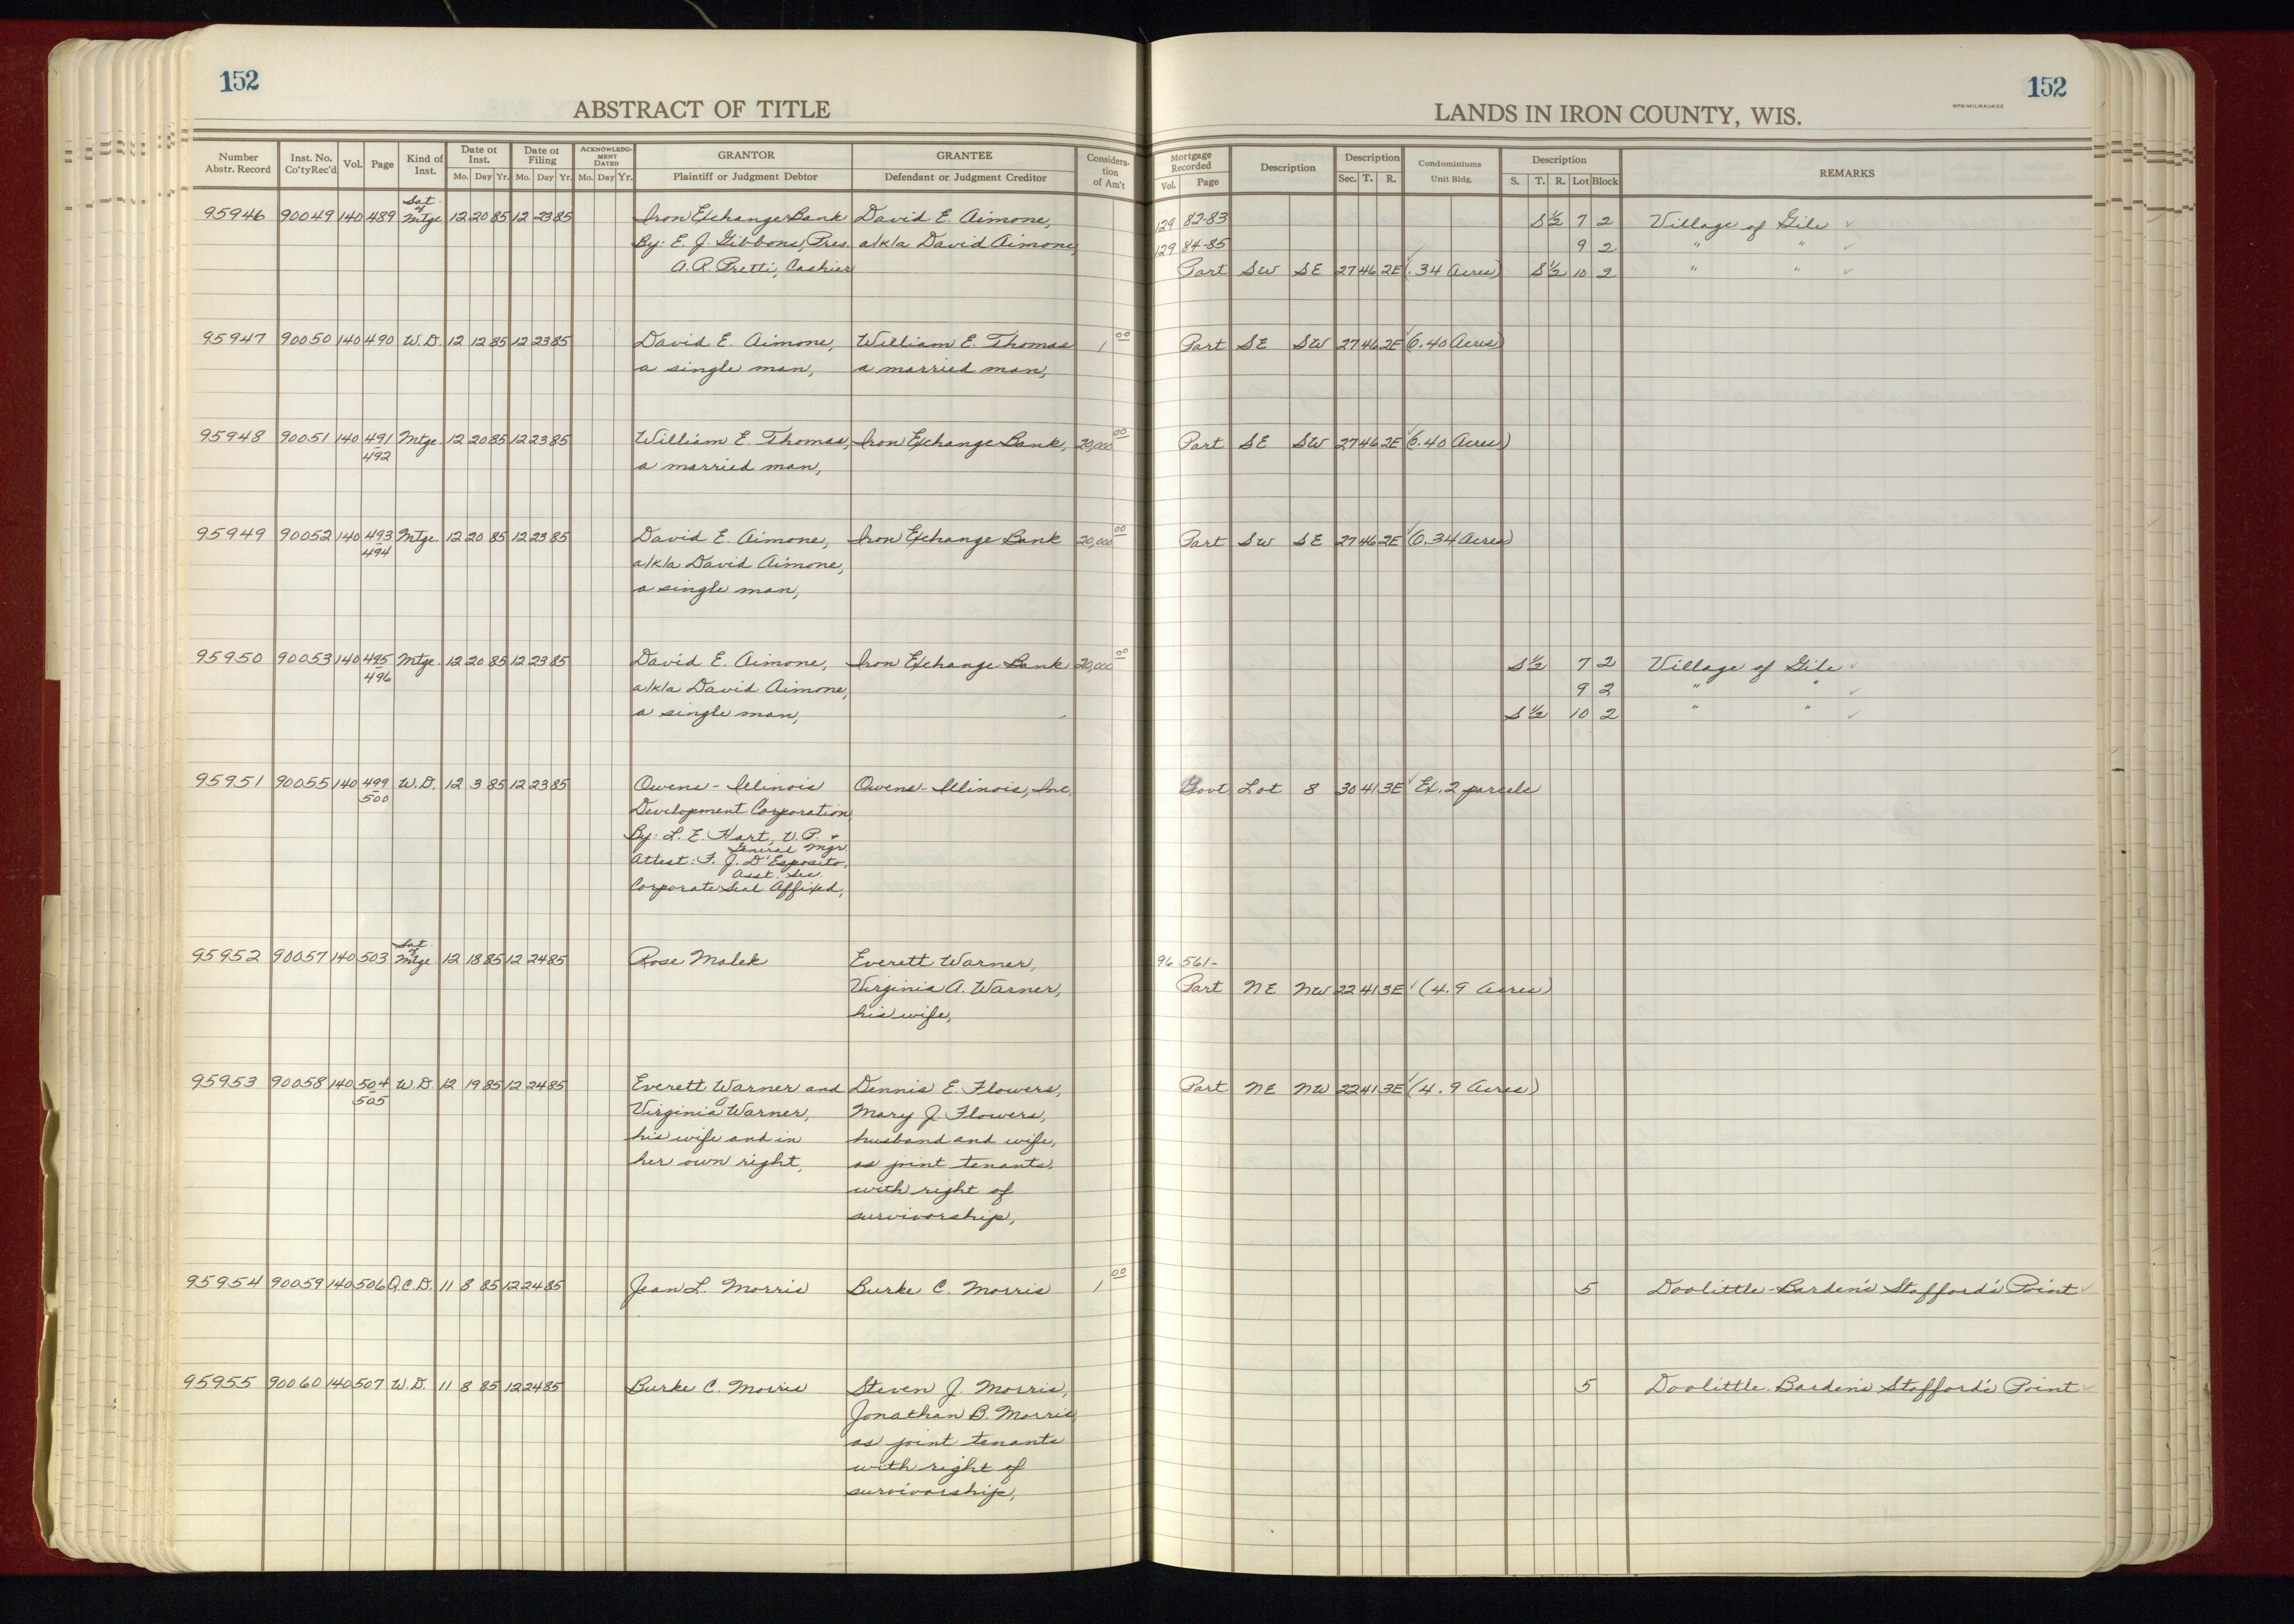 152
152
ABSTRACT OF TITLE
LANDS IN IRON COUNTY, WIS.
WPB-MILWAUKEE
Number Abstr. Record Inst. No. Co'ty Rec'd Vol. Page Kind of Inst. Date of Inst. Mo. Day Yr. Date of Filing Mo. Day Yr. ACKNOWLEDG-MENT DATED Mo. Day Yr. GRANTOR Plaintiff or Judgment Debtor GRANTEE Defendant or Judgment Creditor Considera-tion of Am't Mortgage Recorded Vol. Page Description Description Sec. T. R. Condominiums Unit Bldg. Description S. T. R. Lot Block REMARKS
95946 90049 140 489 Sat. of Mtge 12 20 85 12 23 85 Iron Exchange Bank David E. Aimone, 129 82-83 S½ 7 2 Village of Gile ✓
By: E. J. Gibbons, Pres. a/k/a David Aimone, 129 84-85 9 2 " " ✓
A. R. Pretti, Cashier Part SW SE 27 46 2E ✓ (.34 Acres) S½ 10 2 " " ✓
95947 90050 140 490 W.D. 12 12 85 12 23 85 David E. Aimone, William E. Thomas 1 00 Part SE SW 27 46 2E ✓ (0.40 Acres)
a single man, a married man,
95948 90051 140 491 Mtge. 12 20 85 12 23 85 William E. Thomas, Iron Exchange Bank, 20,000 00 Part SE SW 27 46 2E ✓ (0.40 Acres)
492 a married man,
95949 90052 140 493 Mtge. 12 20 85 12 23 85 David E. Aimone, Iron Exchange Bank 20,000 00 Part SW SE 27 46 2E ✓ (0.34 Acres)
494 a/k/a David Aimone,
a single man,
95950 90053 140 495 Mtge. 12 20 85 12 23 85 David E. Aimone, Iron Exchange Bank 20,000 00 S½ 7 2 Village of Gile ✓
496 a/k/a David Aimone, 9 2 " " ✓
a single man, S½ 10 2 " " ✓
95951 90055 140 499 W.D. 12 3 85 12 23 85 Owens-Illinois Owens-Illinois, Inc. Govt Lot 8 30 41 3E ✓ Ex. 2 parcels
500 Development Corporation,
By: L. E. Hart, V. P. +
General Mgr.
Attest: F. J. D'Esposito,
Asst. Sec.
Corporate Seal Affixed,
95952 90057 140 503 Sat. of Mtge. 12 18 85 12 24 85 Rose Malek Everett Warner, 96 561-
Virginia A. Warner, Part NE NW 22 41 3E ✓ (4.9 Acres)
his wife,
95953 90058 140 504 W.D. 12 19 85 12 24 85 Everett Warner and Dennis E. Flowers, Part NE NW 22 41 3E ✓ (4.9 Acres)
505 Virginia A. Warner, Mary J. Flowers,
his wife and in husband and wife,
her own right, as joint tenants,
with right of
survivorship,
95954 90059 140 506 Q.C.D. 11 8 85 12 24 85 Jean L. Morris Burke C. Morris 1 00 5 Doolittle-Barden's Stafford's Point ✓
95955 90060 140 507 W.D. 11 8 85 12 24 85 Burke C. Morris Steven J. Morris, 5 Doolittle-Barden's Stafford's Point ✓
Jonathan B. Morris,
as joint tenants
with right of
survivorship,